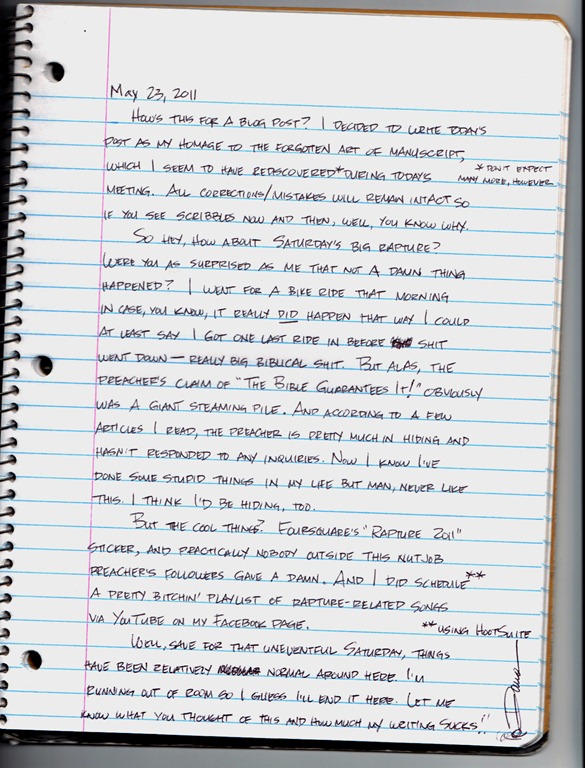 May 23, 2011
How's this for a blog post? I decided to write today's
post as my homage to the forgotten art of manuscript,
which I seem to have rediscovered* during todays
* Don't expect
many more, however
meeting. All corrections/mistakes will remain intact so
if you see scribbles now and then, well, you know why.
So hey, how about Saturday's big rapture?
Were you as surprised as me that not a damn thing
happened? I went for a bike ride that morning
in case, you know, it really did happen that way I could
at least say I got one last ride in before shit
went down — really big biblical shit. But alas, the
preacher's claim of "The Bible Guarantees It!" obviously
was a giant steaming pile. And according to a few
articles I read, the preacher is pretty much in hiding and
hasn't responded to any inquiries. Now I know I've
done some stupid things in my life but man, never like
this. I think I'd be hiding, too.
But the cool thing? Foursquare's "Rapture 2011"
sticker, and practically nobody outside this nutjob
preacher's followers gave a damn. And I did schedule**
a pretty bitchin' playlist of rapture-related songs
via YouTube on my Facebook page.
**using HootSuite
Well, save for that uneventful Saturday, things
have been relatively normal around here. I'm
running out of room so I guess I'll end it here. Let me
know what you thought of this and how much my writing sucks!!